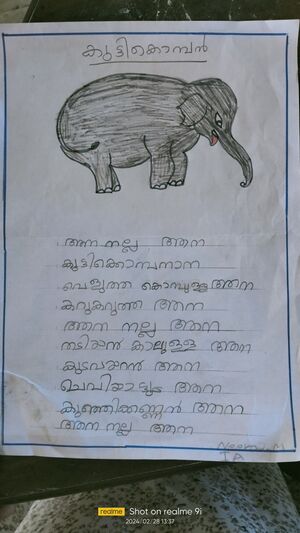 കുട്ടികൊമ്പൻ
ആന നല്ല ആന
കുട്ടിക്കൊമ്പനാന
വെളുത്ത കൊമ്പുള്ള ആന
കറുകറുത്ത ആന
ആന നല്ല ആന
തടിയൻ കാലുള്ള ആന
കുടവയറൻ ആന
ചെവിയാട്ടും ആന
കുഞ്ഞിക്കണ്ണൻ ആന
ആന നല്ല ആന
I A
realme Shot on realme 9i
2024/02/28 13:37